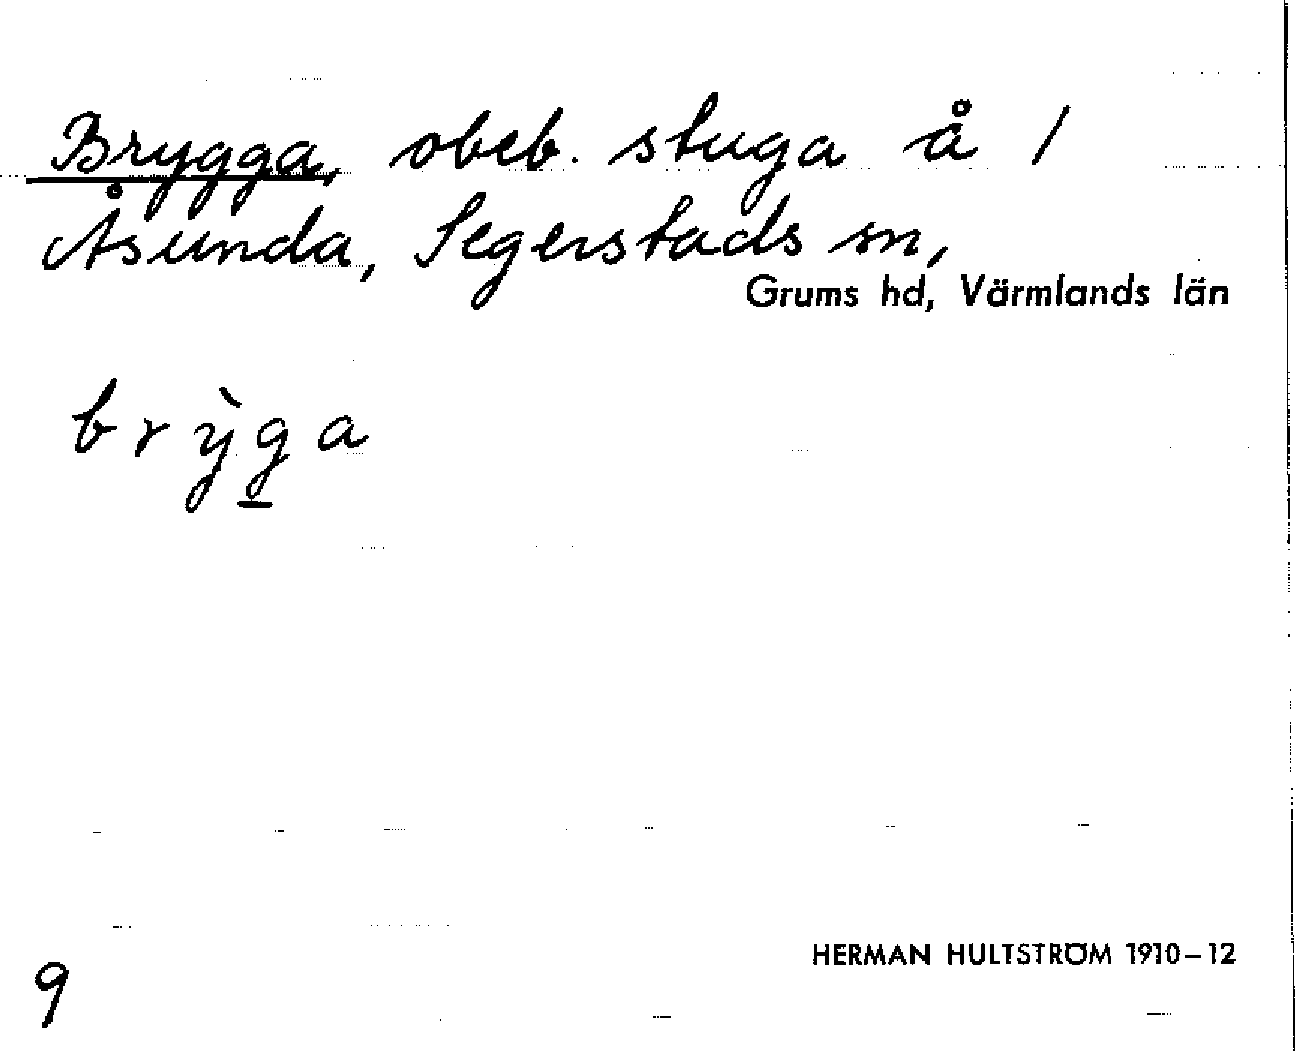 Brygga, obeb. stuga å 1
Åsunda, Segerstads sn,
Grums hd, Värmlands län
brỳga
HERMAN HULTSTRÖM 1910–12
9